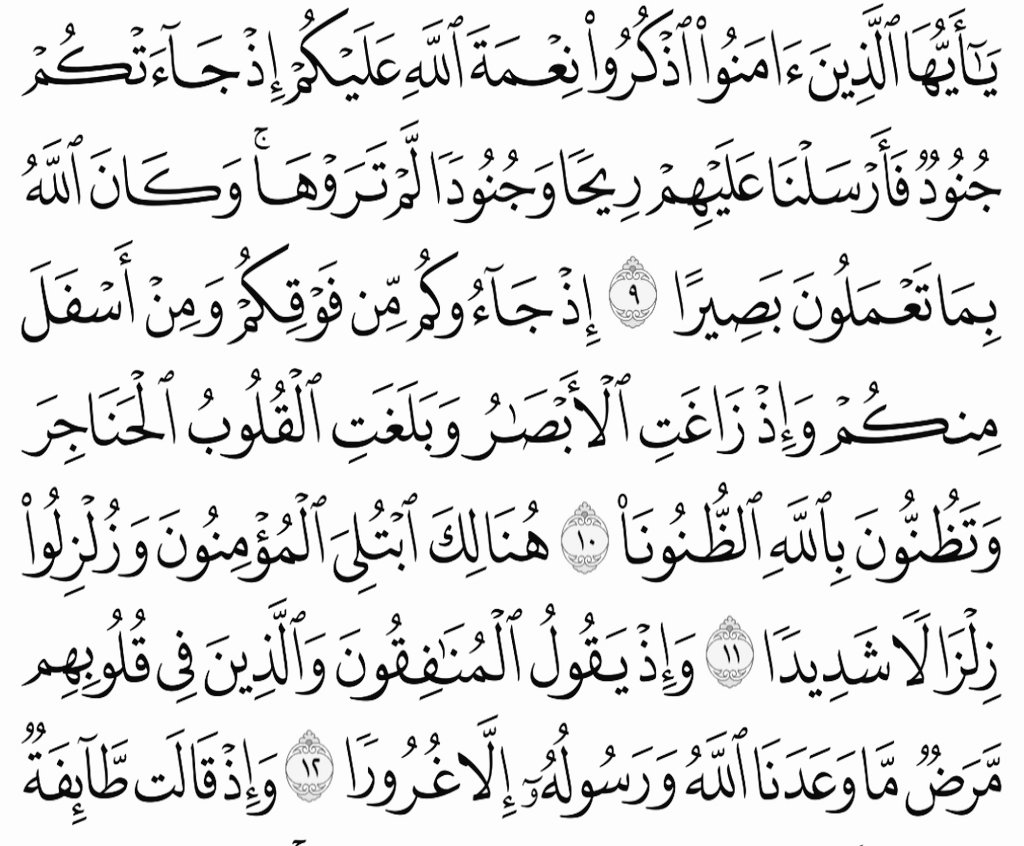 يَـٰٓأَيُّهَا ٱلَّذِينَ ءَامَنُوا۟ ٱذْكُرُوا۟ نِعْمَةَ ٱللَّهِ عَلَيْكُمْ إِذْ جَآءَتْكُمْ
جُنُودٌ فَأَرْسَلْنَا عَلَيْهِمْ رِيحًا وَجُنُودًا لَّمْ تَرَوْهَا ۚ وَكَانَ ٱللَّهُ
بِمَا تَعْمَلُونَ بَصِيرًا ٩ إِذْ جَآءُوكُم مِّن فَوْقِكُمْ وَمِنْ أَسْفَلَ
مِنكُمْ وَإِذْ زَاغَتِ ٱلْأَبْصَـٰرُ وَبَلَغَتِ ٱلْقُلُوبُ ٱلْحَنَاجِرَ
وَتَظُنُّونَ بِٱللَّهِ ٱلظُّنُونَا۠ ١٠ هُنَالِكَ ٱبْتُلِىَ ٱلْمُؤْمِنُونَ وَزُلْزِلُوا۟
زِلْزَالًا شَدِيدًا ١١ وَإِذْ يَقُولُ ٱلْمُنَـٰفِقُونَ وَٱلَّذِينَ فِى قُلُوبِهِم
مَّرَضٌ مَّا وَعَدَنَا ٱللَّهُ وَرَسُولُهُۥٓ إِلَّا غُرُورًا ١٢ وَإِذْ قَالَت طَّآئِفَةٌ